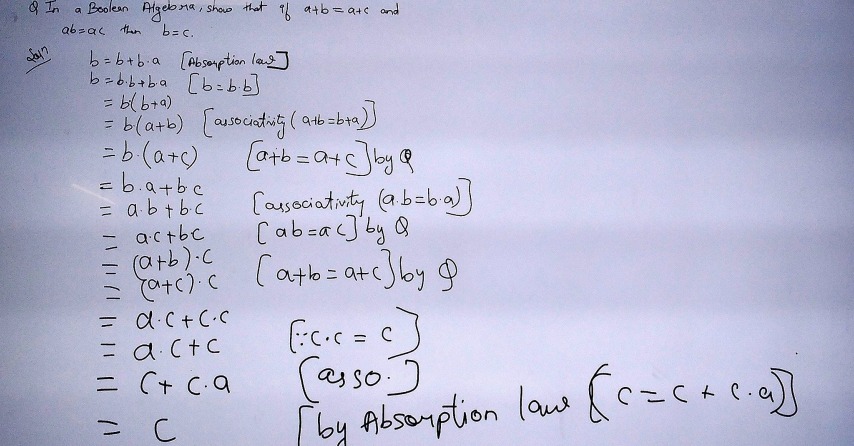 Q In a Boolean Algebra, show that if a+b = a+c and
ab=ac then b=c.
Soln b = b+b·a [Absorption law]
b = b·b+b·a [b=b·b]
= b(b+a)
= b(a+b) [associativity (a+b=b+a)]
= b·(a+c) [a+b = a+c] by Q
= b·a+b·c
= a·b+b·c [associativity (a·b=b·a)]
= a·c+bc [ab=ac] by Q
= (a+b)·c
= (a+c)·c [a+b = a+c] by Q
= a·c+c·c
= a·c+c [∵c·c = c]
= c+c·a [asso.]
= c [by Absorption law (c=c+c·a)]